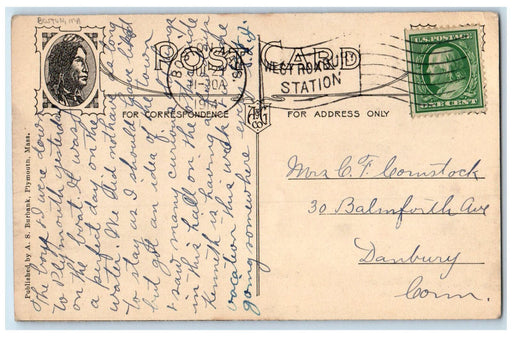 BOSTON, MA
POST CARD
BOSTON
11-30A
1914
WEST ROXBURY
STATION
U.S. POSTAGE
ONE CENT
FOR CORRESPONDENCE
FOR ADDRESS ONLY
Published by A. S. Burbank, Plymouth, Mass.
The boys & I were down
to Plymouth yesterday
on the boat. It was
a perfect day on the
water. We did not have long
to stay as I should have liked
but got an idea of the town
& saw many curios
in this hall on the other side
Kenneth is having a
vacation this week
going somewhere every
Mrs C. F. Comstock
30 Balmforth Ave
Danbury
Conn.